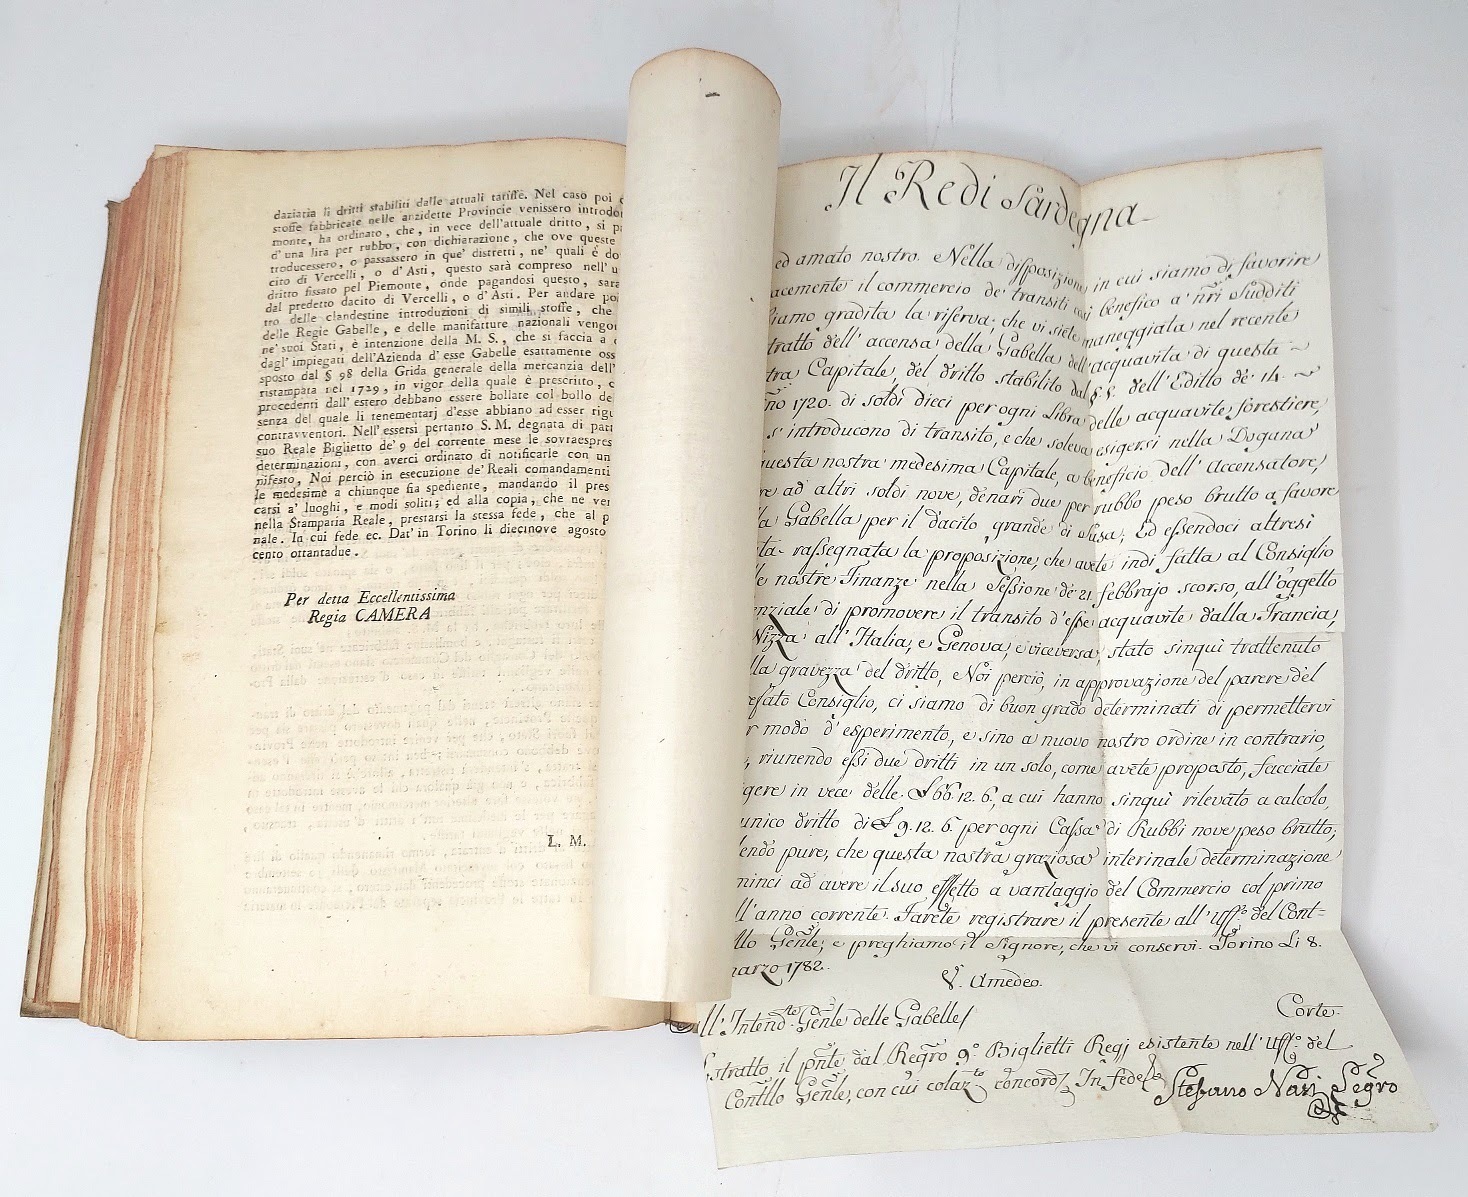 daziaria li dritti stabiliti dalle attuali tariffe. Nel caso poi
stoffe fabbricate nelle anzidette Provincie venissero introdo
monte, ha ordinato, che, in vece dell'attuale dritto, si p
d'una lira per rubbo, con dichiarazione, che ove queste
troducessero, o passassero in que' distretti, ne' quali è do
cito di Vercelli, o d'Asti, questo sarà compreso nell'u
dritto fissato pel Piemonte, onde pagandosi questo, sara
dal predetto dacito di Vercelli, o d'Asti. Per andare po
tro delle clandestine introduzioni di simili stoffe, che
delle Regie Gabelle, e delle manifatture nazionali vengo
ne' suoi Stati, è intenzione della M. S., che si faccia a
dagl'impiegati dell'Azienda d'esse Gabelle esattamente oss
sposto dal § 98 della Grida generale della mercanzia dell'
ristampata nel 1729, in vigor della quale è prescritto, c
procedenti dall'estero debbano essere bollate col bollo de
senza del quale li tenementarj d'esse abbiano ad esser rig
contravventori. Nell'essersi pertanto S. M. degnata di pa
suo Reale Biglietto de' 9 del corrente mese le sovraespres
determinazioni, con averci ordinato di notificarle con un
nifesto, Noi perciò in esecuzione de' Reali comandamenti
le medesime a chiunque fia spediente, mandando il pres
carsi a' luoghi, e modi soliti; ed alla copia, che ne ver
nella Stamparia Reale, prestarsi la stessa fede, che al p
nale. In cui fede ec. Dat' in Torino li diecinove agosto
cento ottantadue.
Per detta Eccellentissima
Regia CAMERA
L. M.
Il Re di Sardegna
ed amato nostro. Nella disposizione in cui siamo di favorire
acemente il commercio de' transiti così benefico a' nr̃i Sudditi
iamo gradita la riserva, che vi siete maneggiata nel recente
tratto dell'accensa della Gabella dell'acquavita di questa
tra Capitale, del dritto stabilito dal §. 8. dell'Editto de' 14.
gno 1720. di soldi dieci per ogni Libra delle acquavite forestiere,
s' introducono di transito, e che soleva esigersi nella Dogana
questa nostra medesima Capitale, a beneficio dell'Accensatore,
re ad altri soldi nove, denari due per rubbo peso brutto a favore
la Gabella per il dacito grande di Susa; Ed essendoci altresì
ta rassegnata la proposizione, che avete indi fatta al Consiglio
le nostre Finanze nella Sessione de' 21. febbrajo scorso, all'oggetto
enziale di promovere il transito d'esse acquavite dalla Francia,
Nizza all'Italia, e Genova, e viceversa stato sinquì trattenuto
lla gravezza del dritto, Noi perciò, in approvazione del parere del
efato Consiglio, ci siamo di buon grado determinati di permettervi
r modo d'esperimento, e sino a nuovo nostro ordine in contrario,
, riunendo essi due dritti in un solo, come avete proposto, facciate
gere in vece delle £ 66. 12. 6, a cui hanno sinquì rilevato a calcolo,
unico dritto di £ 9. 12. 6 per ogni Cassa di Rubbi nove peso brutto;
endo pure, che questa nostra graziosa interinale determinazione
minci ad avere il suo effetto a vantaggio del Commercio col primo
ll'anno corrente. Farete registrare il presente all'Uff.o del Cont-
llo Gen̄le; e preghiamo il Signore, che vi conservi. Torino Li 8.
marzo 1782.
V. Amedeo.
Corte.
all'Intend.te Gen̄le delle Gabelle/
stratto il pn̄te dal Regr̃o 9.o Biglietti Regj esistente nell'Uff.o del
Contllo Gen̄le, con cui colaz.to concorda, In fede
Stefano Nasi Segr̃o